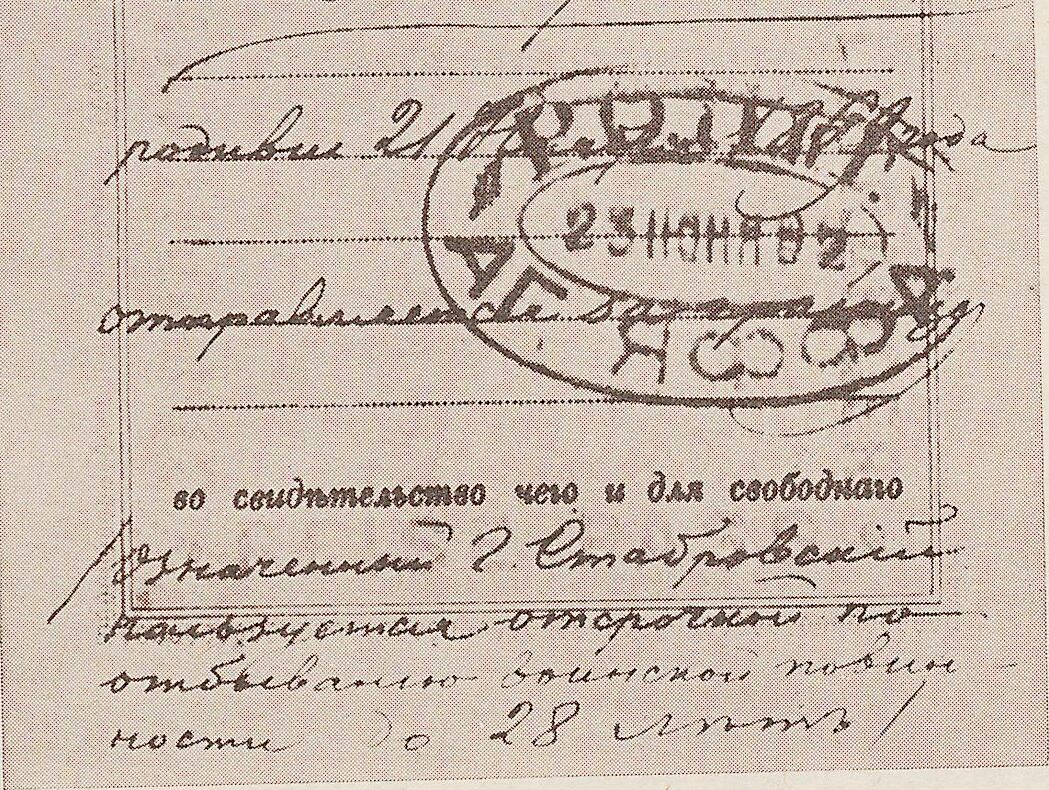 родивш 21
отправляется за границу
23 ИЮНЯ 02
во свидѣтельство чего и для свободнаго
/Означенный г. Стабровскій
пользуется отсрочкой по
отбыванію воинской повин
ности до 28 лѣтъ/